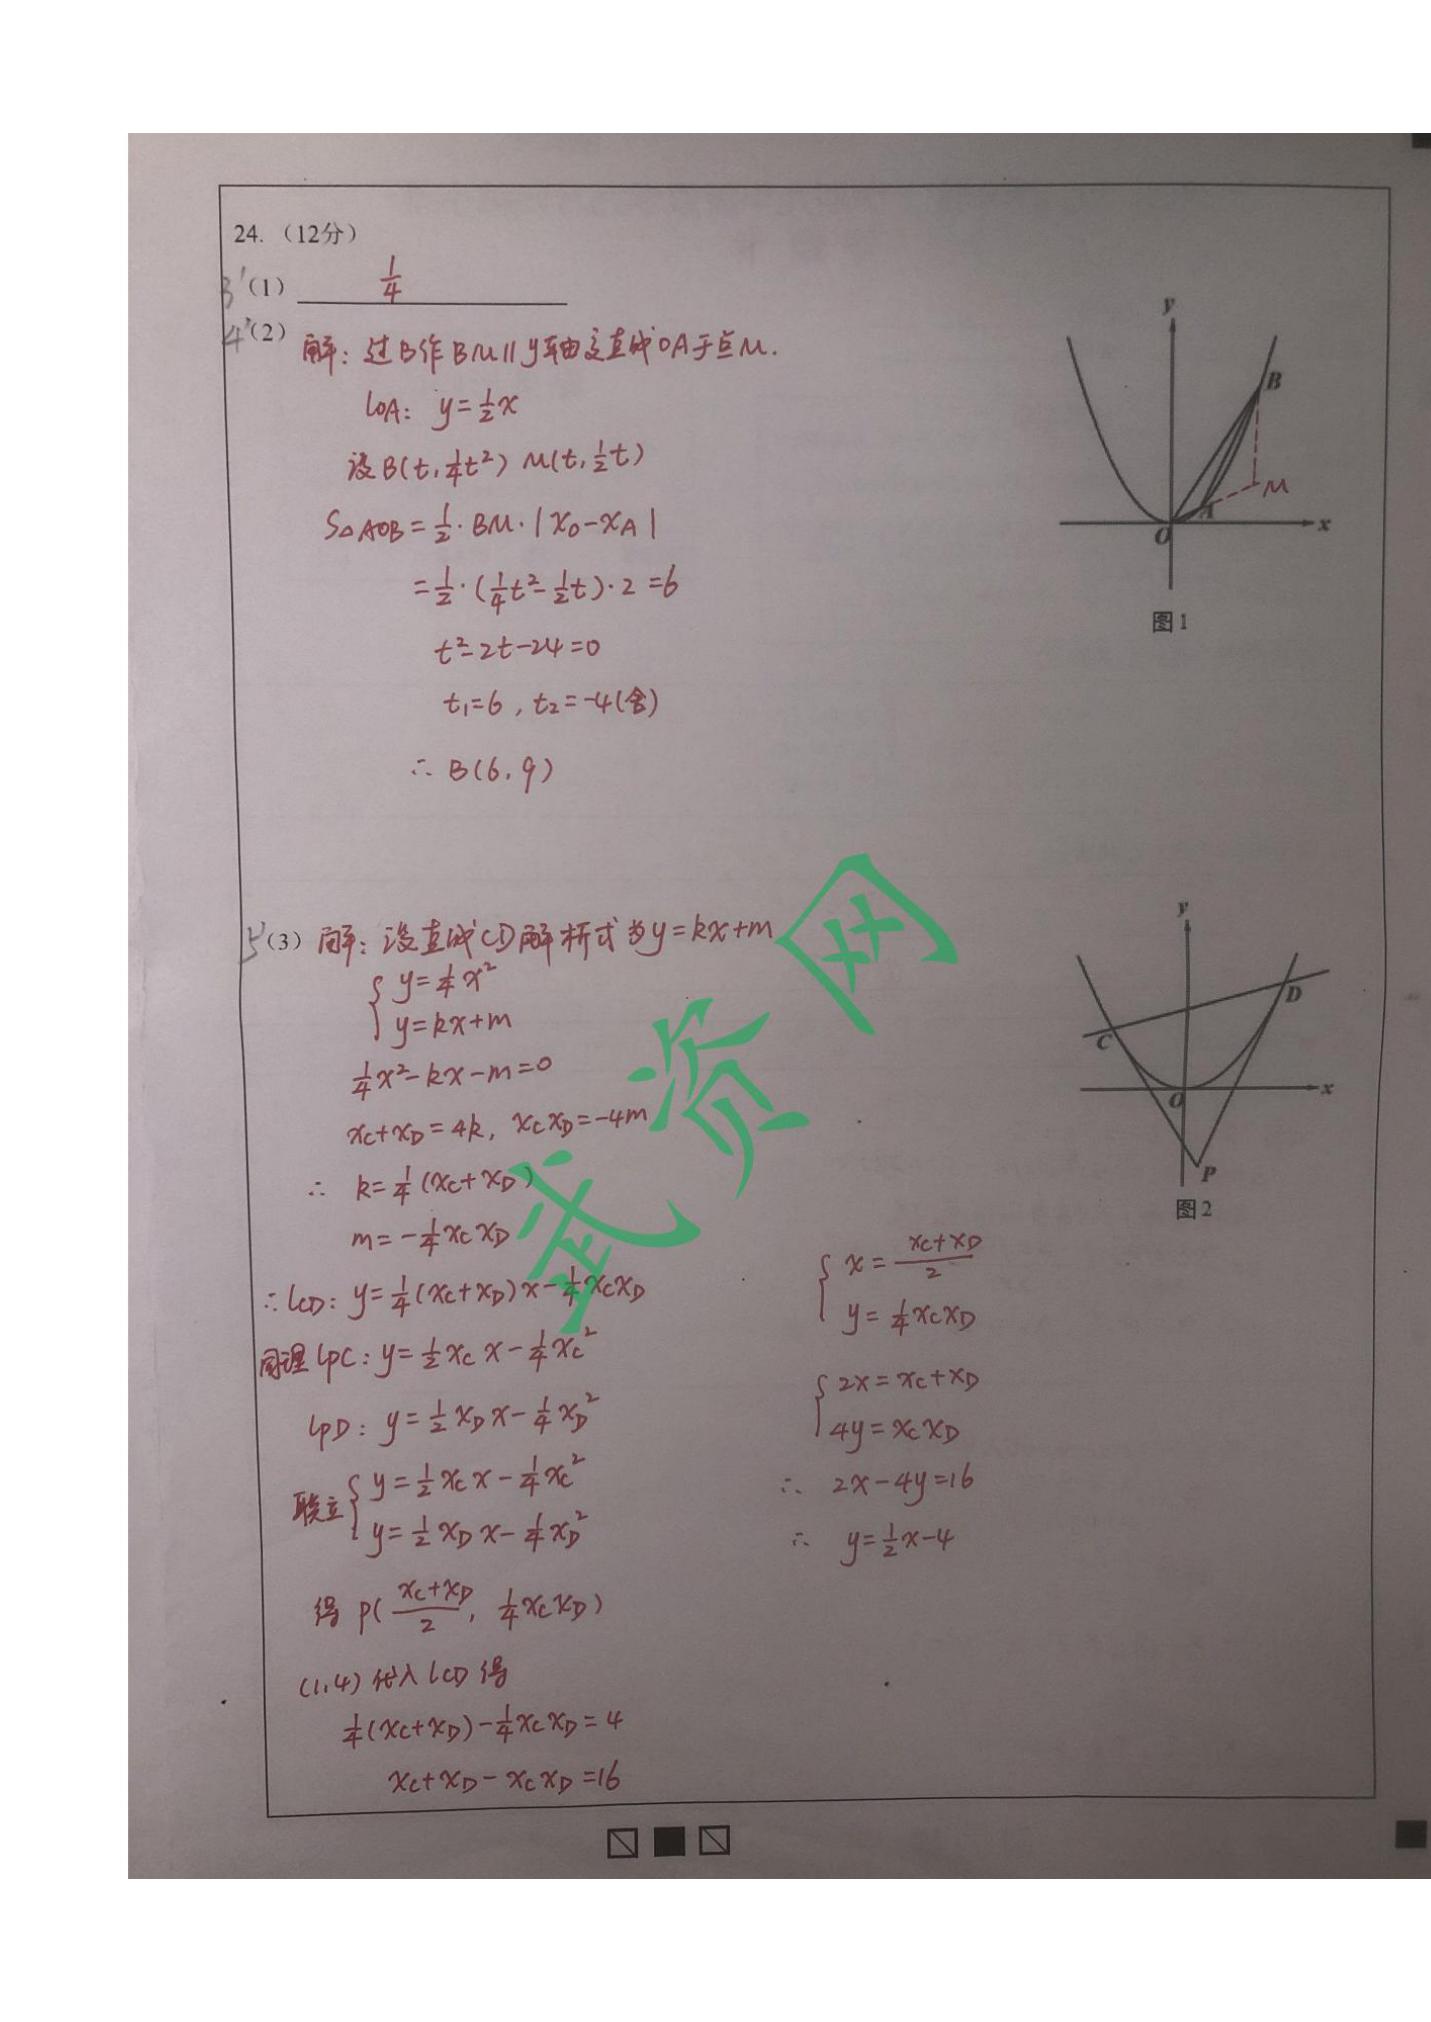 24. （12分）
3'（1） 1/4
4'（2） 解：过B作BM∥y轴交直线OA于点M.
lOA: y=1/2x
设B(t, 1/4t²) M(t, 1/2t)
S△AOB=1/2·BM·|xO-xA|
=1/2·(1/4t²-1/2t)·2=6
t²-2t-24=0
t1=6, t2=-4(舍)
∴ B(6, 9)
y
B
M
A
O
x
图1
5'（3） 解：设直线CD解析式为y=kx+m
{ y=1/4x²
y=kx+m
1/4x²-kx-m=0
xC+xD=4k, xCxD=-4m
∴ k=1/4(xC+xD)
m=-1/4xCxD
∴lCD: y=1/4(xC+xD)x-1/4xCxD
同理lPC: y=1/2xCx-1/4xC²
lPD: y=1/2xDx-1/4xD²
联立{ y=1/2xCx-1/4xC²
y=1/2xDx-1/4xD²
得 P((xC+xD)/2, 1/4xCxD)
(1,4)代入lCD得
1/4(xC+xD)-1/4xCxD=4
xC+xD-xCxD=16
y
D
C
O
x
P
图2
{ x=(xC+xD)/2
y=1/4xCxD
{ 2x=xC+xD
4y=xCxD
∴ 2x-4y=16
∴ y=1/2x-4
武资网